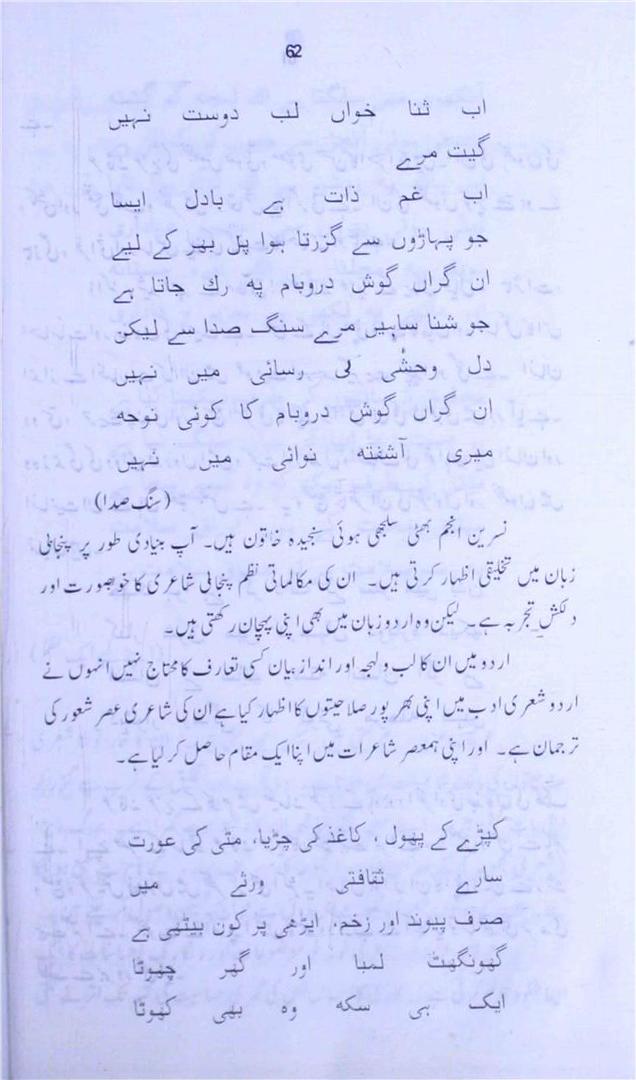 62
اب ثنا خواں لب دوست نہیں
گیت مرے
اب غم ذات ہے بادل ایسا
جو پہاڑوں سے گزرتا ہوا پل بھر کے لیے
ان گراں گوش دروبام پہ رك جاتا ہے
جو شنا ساہیں مرے سنگ صدا سے لیکن
دل وحشی کی رسائی میں نہیں
ان گراں گوش دروبام کا کوئی نوحہ
میری آشفتہ نوائی میں نہیں
(سنگ صدا)
نسرین انجم بھٹی سلجھی ہوئی سنجیدہ خاتون ہیں۔ آپ بنیادی طور پر پنجابی
زبان میں تخلیقی اظہار کرتی ہیں۔ ان کی مکالماتی نظم پنجابی شاعری کا خوبصورت اور
دلکش تجربہ ہے۔ لیکن وہ اردو زبان میں بھی اپنی پہچان رکھتی ہیں۔
اردو میں ان کا لب و لہجہ اور انداز بیان کسی تعارف کا محتاج نہیں انہوں نے
اردو شعری ادب میں اپنی بھرپور صلاحیتوں کا اظہار کیا ہے ان کی شاعری عصر شعور کی
ترجمان ہے۔ اور اپنی ہمعصر شاعرات میں اپنا ایک مقام حاصل کر لیا ہے۔
کپڑے کے پھول ، کاغذ کی چڑیا، مٹی کی عورت
سارے ثقافتی ورثے میں
صرف پیوند اور زخم، ایڑھی پر کون بیٹھی ہے
گھونگھٹ لمبا اور گھر چھوٹا
ایک ہی سکہ وہ بھی کھوٹا